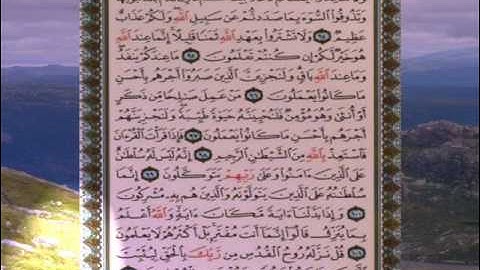 وَتَذُوقُوا۟ ٱلسُّوٓءَ بِمَا صَدَدتُّمْ عَن سَبِيلِ ٱللَّهِ وَلَكُمْ عَذَابٌ
عَظِيمٌ ٩٤ وَلَا تَشْتَرُوا۟ بِعَهْدِ ٱللَّهِ ثَمَنًا قَلِيلًا إِنَّمَا عِندَ ٱللَّهِ
هُوَ خَيْرٌ لَّكُمْ إِن كُنتُمْ تَعْلَمُونَ ٩٥ مَا عِندَكُمْ يَنفَدُ
وَمَا عِندَ ٱللَّهِ بَاقٍ وَلَنَجْزِيَنَّ ٱلَّذِينَ صَبَرُوٓا۟ أَجْرَهُم بِأَحْسَنِ
مَا كَانُوا۟ يَعْمَلُونَ ٩٦ مَنْ عَمِلَ صَٰلِحًا مِّن ذَكَرٍ
أَوْ أُنثَىٰ وَهُوَ مُؤْمِنٌ فَلَنُحْيِيَنَّهُۥ حَيَوٰةً طَيِّبَةً وَلَنَجْزِيَنَّهُمْ
أَجْرَهُم بِأَحْسَنِ مَا كَانُوا۟ يَعْمَلُونَ ٩٧ فَإِذَا قَرَأْتَ ٱلْقُرْءَانَ
فَٱسْتَعِذْ بِٱللَّهِ مِنَ ٱلشَّيْطَٰنِ ٱلرَّجِيمِ ٩٨ إِنَّهُۥ لَيْسَ لَهُۥ سُلْطَٰنٌ
عَلَى ٱلَّذِينَ ءَامَنُوا۟ وَعَلَىٰ رَبِّهِمْ يَتَوَكَّلُونَ ٩٩ إِنَّمَا
سُلْطَٰنُهُۥ عَلَى ٱلَّذِينَ يَتَوَلَّوْنَهُۥ وَٱلَّذِينَ هُم بِهِۦ مُشْرِكُونَ
١٠٠ وَإِذَا بَدَّلْنَآ ءَايَةً مَّكَانَ ءَايَةٍ وَٱللَّهُ أَعْلَمُ
بِمَا يُنَزِّلُ قَالُوٓا۟ إِنَّمَآ أَنتَ مُفْتَرٍ بَلْ أَكْثَرُهُمْ لَا يَعْلَمُونَ
١٠١ قُلْ نَزَّلَهُۥ رُوحُ ٱلْقُدُسِ مِن رَّبِّكَ بِٱلْحَقِّ لِيُثَبِّتَ